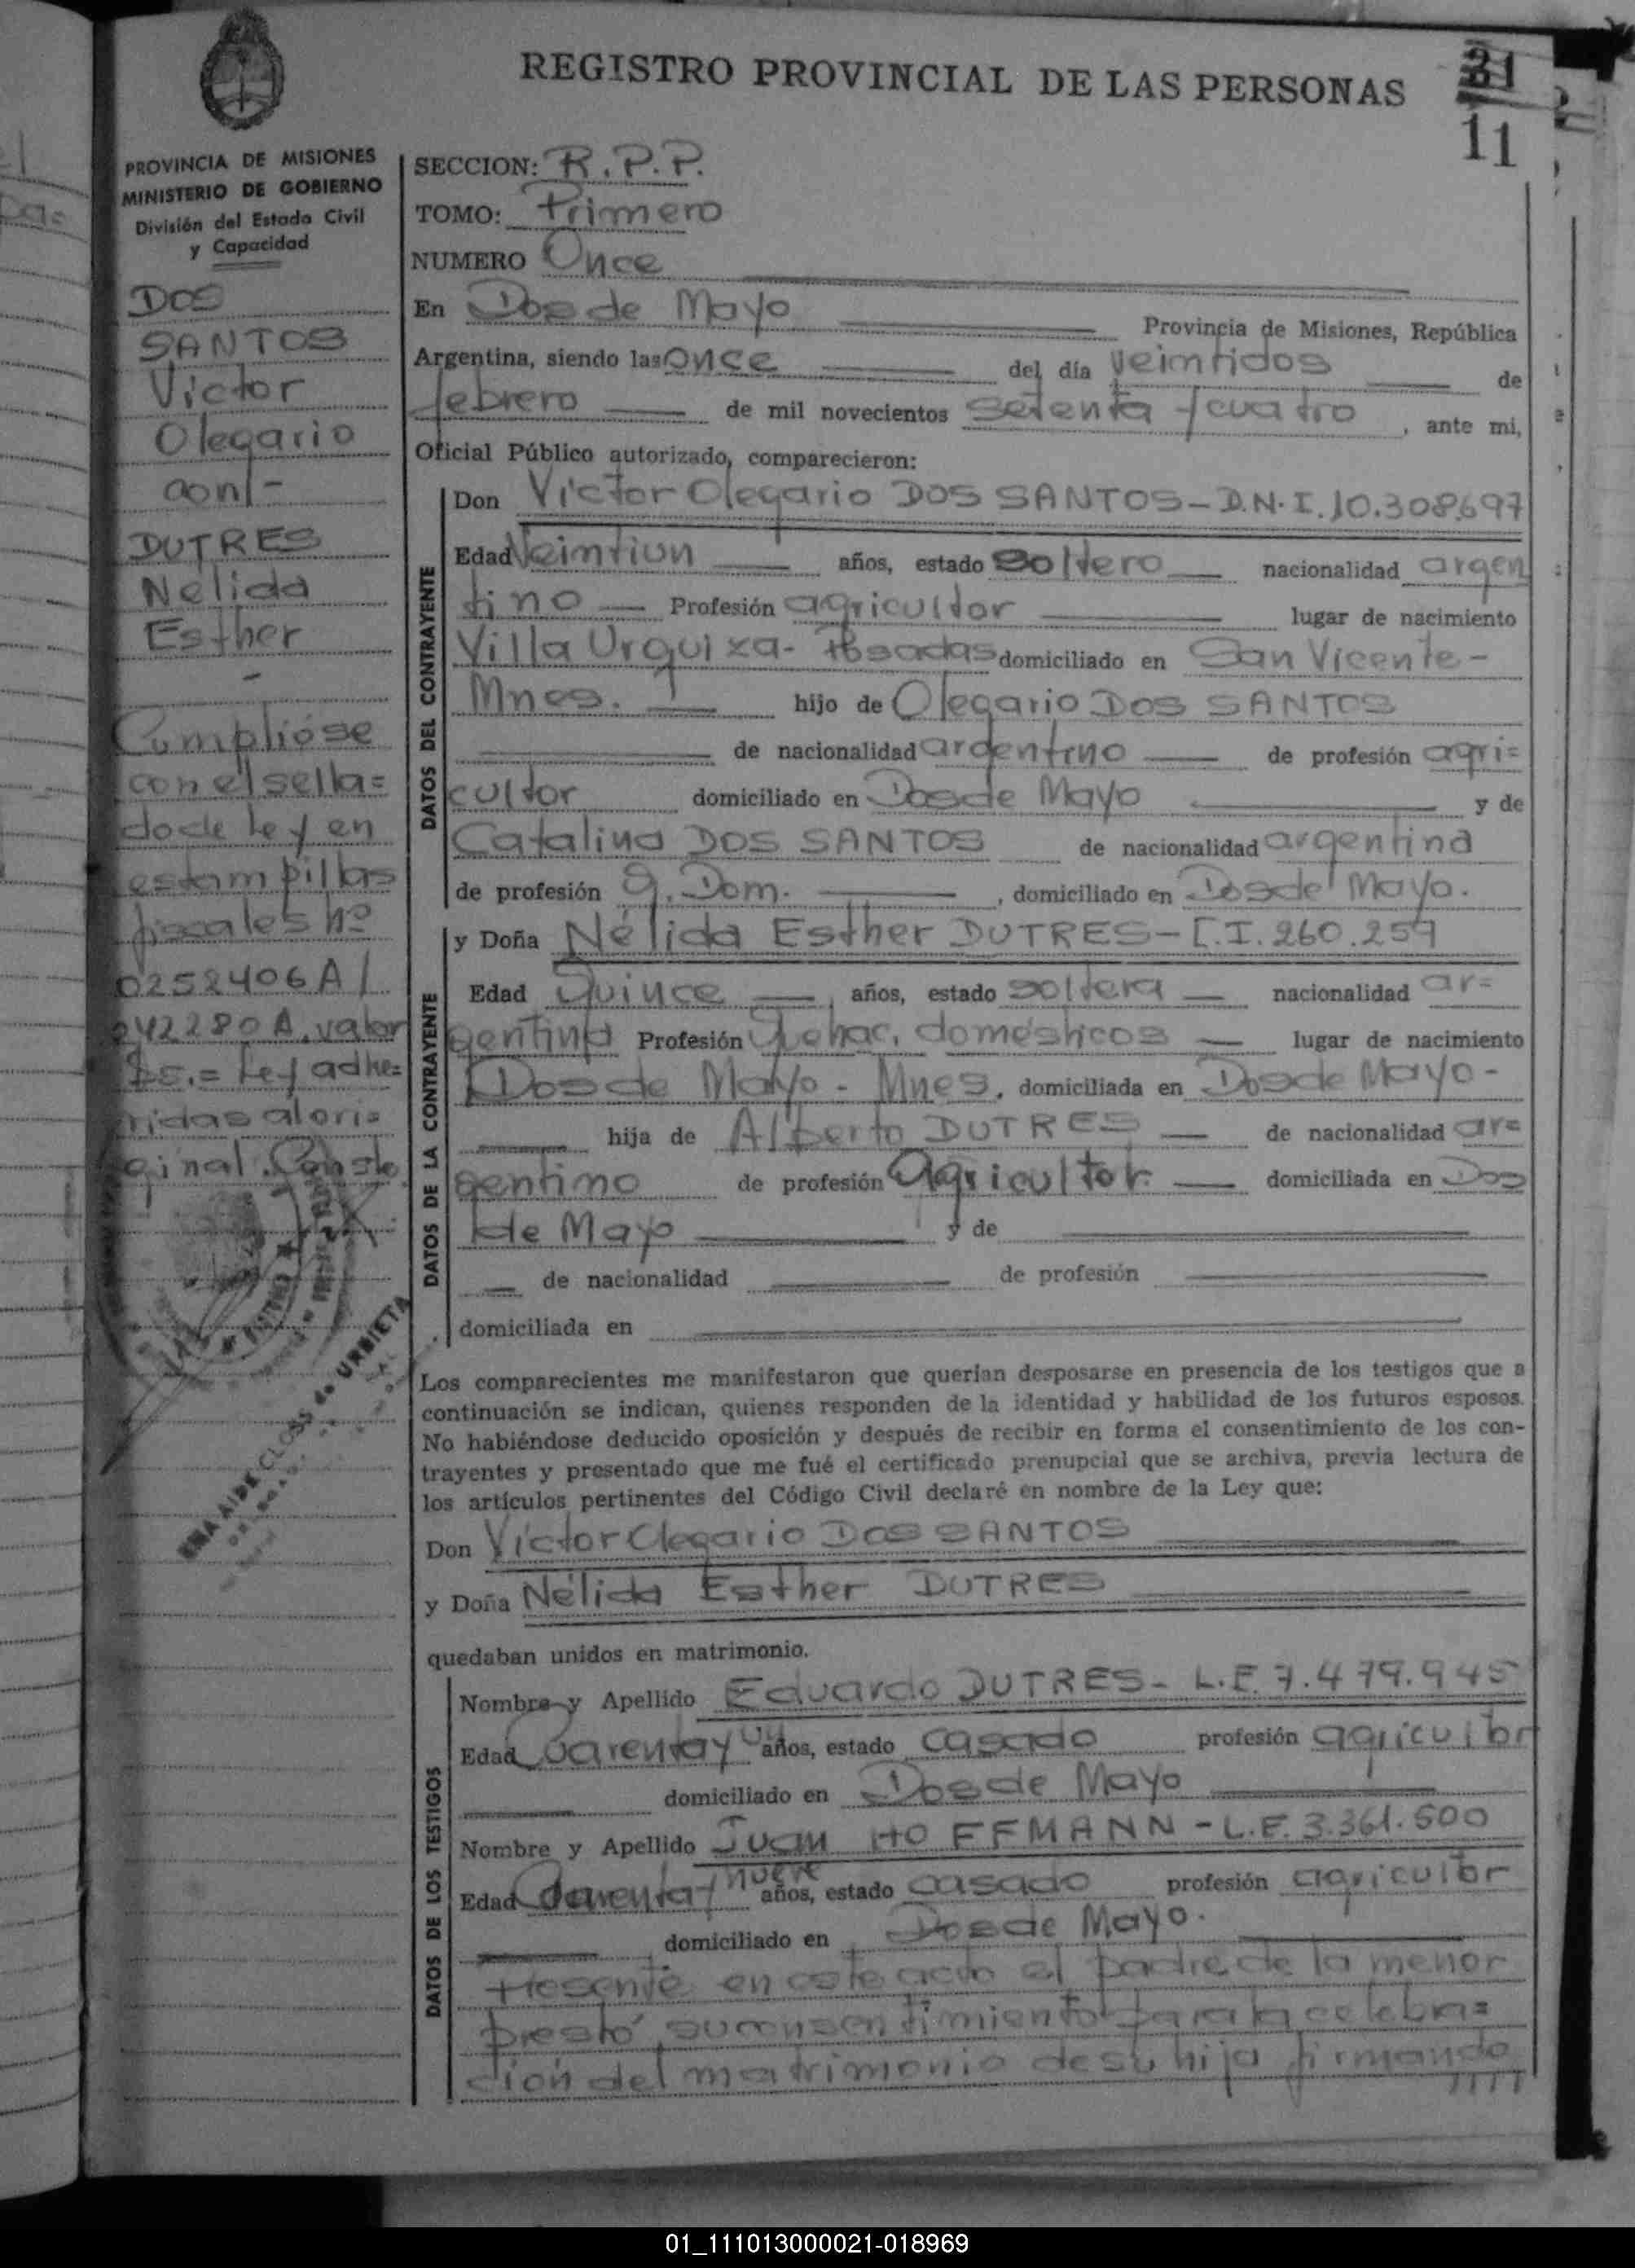 REGISTRO PROVINCIAL DE LAS PERSONAS
11
PROVINCIA DE MISIONES
MINISTERIO DE GOBIERNO
División del Estado Civil
y Capacidad
DOS
SANTOS
Victor
Olegario
con/-
DUTRES
Nelida
Esther
-
Cumplióse
con el sella=
do de Ley en
estampillas
fiscales Nº
0252406A/
242280A, valor
$5.= Ley adhe=
ridas al ori=
ginal. Conste
ENA AIDE CLOSS de URBIETA
SECCION: R.P.P.
TOMO: Primero
NUMERO Once
En Dos de Mayo Provincia de Misiones, República
Argentina, siendo las Once del día veintidos de
febrero de mil novecientos setenta y cuatro, ante mi,
Oficial Público autorizado, comparecieron:
DATOS DEL CONTRAYENTE
Don Victor Olegario DOS SANTOS - D.N.I. 10.308.697
Edad Veintiun años, estado soltero nacionalidad argen
tino Profesión agricultor lugar de nacimiento
Villa Urquiza - Posadas domiciliado en San Vicente -
Mnes. hijo de Olegario DOS SANTOS
de nacionalidad argentino de profesión agri=
cultor domiciliado en Dos de Mayo y de
Catalina DOS SANTOS de nacionalidad argentina
de profesión q. Dom. , domiciliado en Dos de Mayo.
DATOS DE LA CONTRAYENTE
y Doña Nélida Esther DUTRES - C.I. 260.259
Edad Quince años, estado soltera nacionalidad ar=
gentina Profesión Quehac. domésticos lugar de nacimiento
Dos de Mayo - Mnes. domiciliada en Dos de Mayo -
hija de Alberto DUTRES de nacionalidad ar=
gentino de profesión Agricultor. domiciliada en Dos
de Mayo y de
de nacionalidad de profesión
domiciliada en
Los comparecientes me manifestaron que querían desposarse en presencia de los testigos que a
continuación se indican, quienes responden de la identidad y habilidad de los futuros esposos.
No habiéndose deducido oposición y después de recibir en forma el consentimiento de los con-
trayentes y presentado que me fué el certificado prenupcial que se archiva, previa lectura de
los artículos pertinentes del Código Civil declaré en nombre de la Ley que:
Don Victor Olegario DOS SANTOS
y Doña Nélida Esther DUTRES
quedaban unidos en matrimonio.
DATOS DE LOS TESTIGOS
Nombre y Apellido Eduardo DUTRES - L.E. 7.479.945
Edad Cuarenta y un años, estado casado profesión agricultor
domiciliado en Dos de Mayo
Nombre y Apellido Juan HOFFMANN - L.E. 3.361.500
Edad Cuarenta y nueve años, estado casado profesión agricultor
domiciliado en Dos de Mayo.
Presente en este acto el padre de la menor
prestó su consentimiento para la celebra=
ción del matrimonio de su hija firmando
01_111013000021-018969